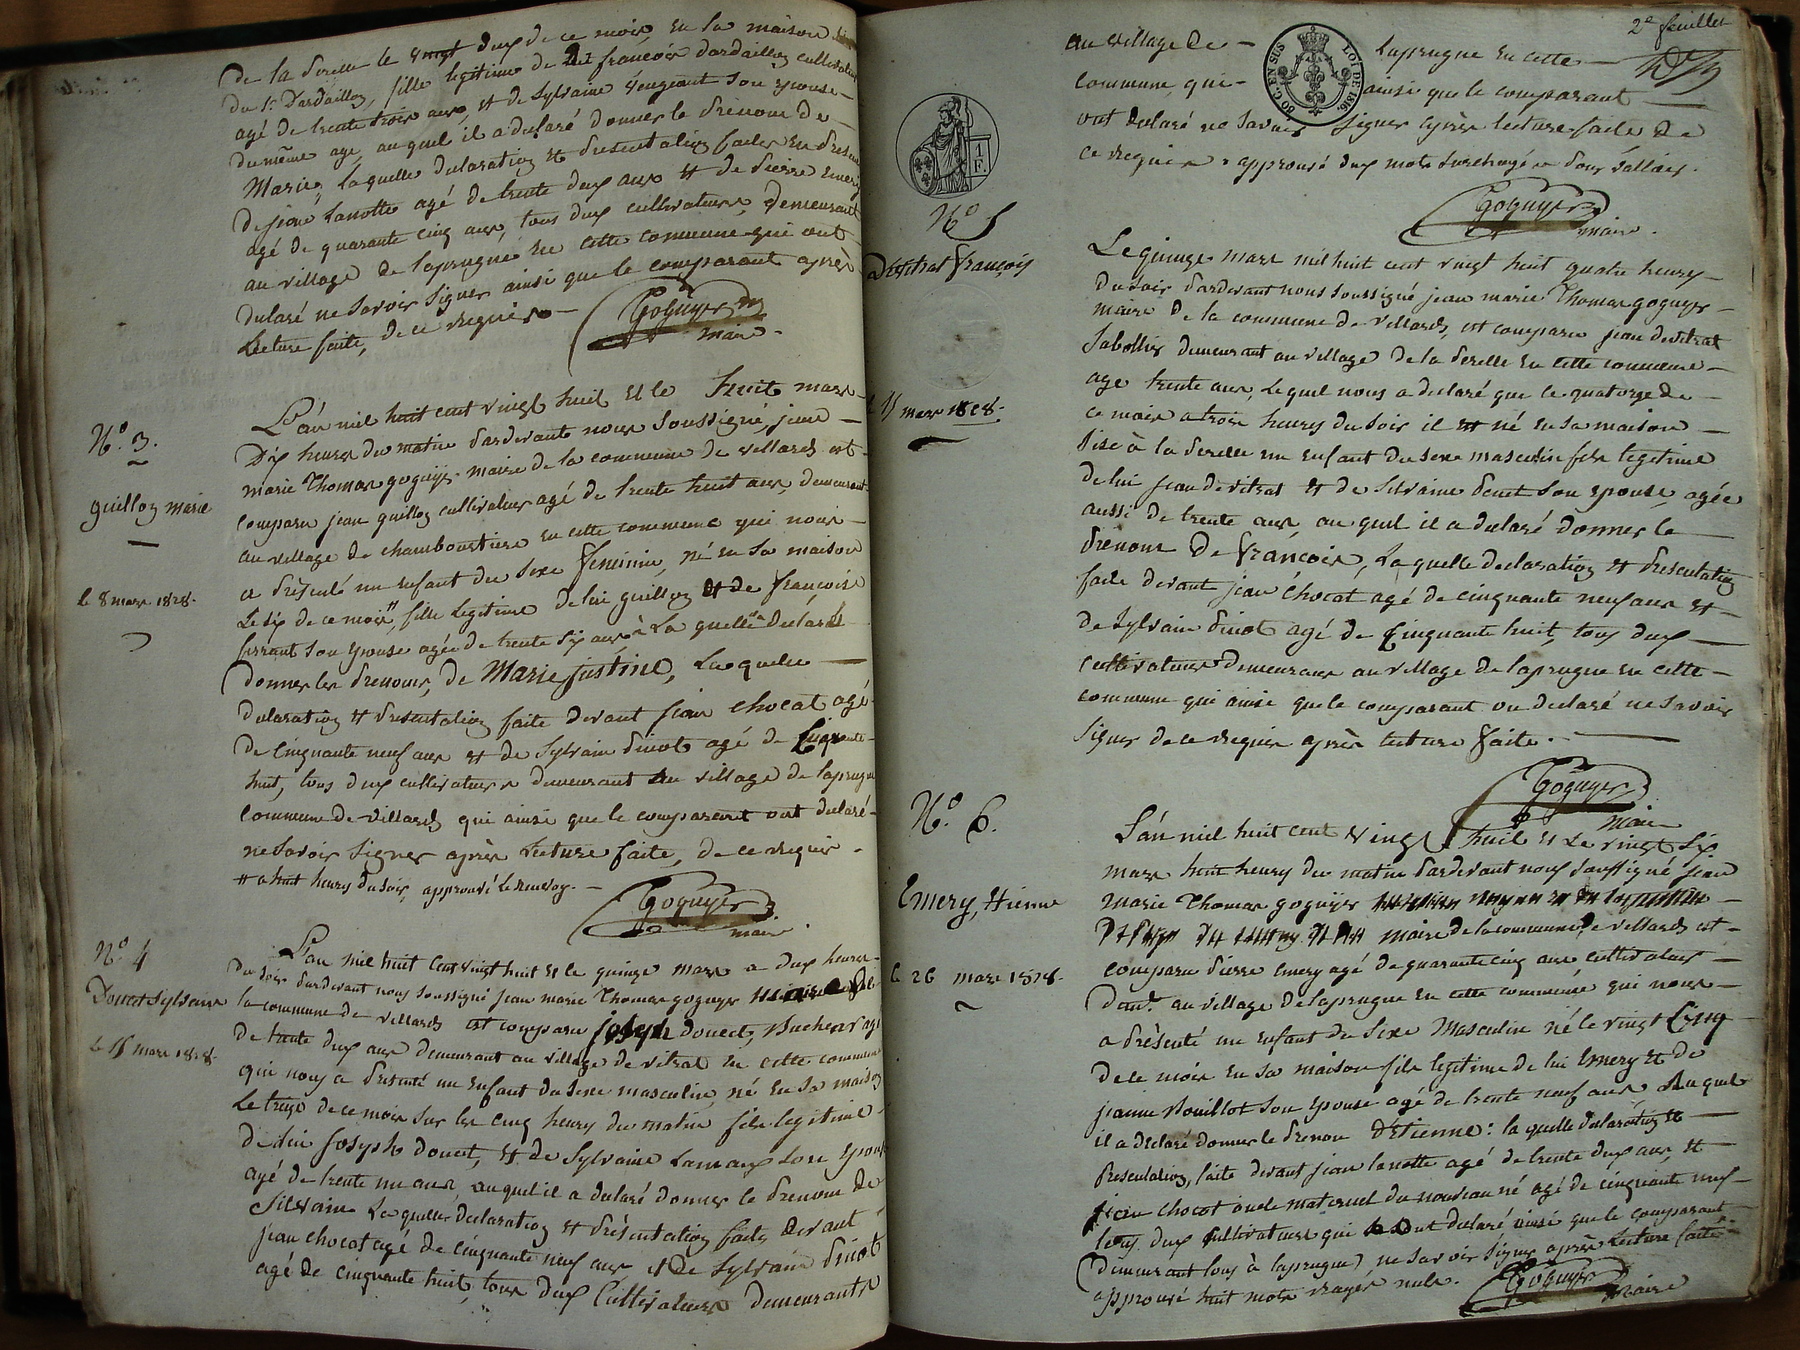 de la Serelle le vingt deux de ce mois, en la maison
du Sr Dardaillon, fille legitime de françois dardaillon cultivateur
agé de trente trois ans, et de Sylvaine son epouse
du même age, au quel il a declaré donner le Prenom de
Marie, la quelle declaration et presentation faites en presence
de jean Lanotte agé de trente deux ans et de Pierre Emery
agé de quarante cinq ans, tous deux cultivateurs, demeurant
au village de laprugne en cette commune qui ont
declaré ne Savoir Signer ainsi que le comparant après
Lecture faite, de ce requis
Goguyer
maire
N° 3.
guillon marie
le 8 mars 1828.
L'an mil huit cent vingt huit et le huit mars
Dix heures du matin Pardevant nous Soussigné, jean
marie Thomas goguyer maire de la commune de villards est
comparu jean guillon cultivateur agé de trente huit ans, demeurant
au village de chamboustiere en cette commune qui nous
a présenté un enfant du Sexe feminin, né en Sa maison
Le Six de ce mois", fille Legitime de lui guillon et de francoise
ferrant Son epouse agée de trente Six ans, à La quelle Declaré
Donner les Prenoms, de Marie justine, La quelle
declaration et presentation faite devant jean chocat agé
de cinquante neuf ans et de Sylvain Pinot agé de Cinquante
huit, tous deux cultivateurs demeurant au village de laprugne
commune de villards qui ainsi que le comparant ont declaré
ne Savoir Signer après Lecture faite, de ce requis
" a huit heures du Soir, approuvé le renvoy.
Goguyer
maire
N° 4
Doucet Sylvain
le 15 mars 1828.
L'an mil huit Cent vingt huit et le quinze mars a deux heures
du Soir Pardevant nous Soussigné jean marie Thomas goguyer maire de
la commune de villards est comparu joseph doucet, Bucheur agé
de trente deux ans demeurant au village de vitrat en cette commune
qui nous a Presenté un enfant du Sexe masculin, né en Sa maison
Le treize de ce mois Sur les cinq heures du matin fils legitime
de lui Joseph doucet, et de Sylvaine Lamaux Son epouse
agé de trente un ans, au quel il a declaré donner le Prenom de
Silvain La quelle declaration et présentation faite devant
jean chocat agé de cinquante neuf ans et de Sylvain Pinot
agé de cinquante huit, tous deux Cultivateurs demeurants
2e feuillet
au village de laprugne en cette
commune, qui ainsi que le comparant
ont declaré ne Savoir Signer après lecture faite de
ce requis approuvé deux mots Surchargés Saillais.
80 C. EN SUS
LOI DE 1816.
1 F.
Goguyer
maire.
N° 5
Devitrat françois
15 mars 1828.
Le quinze mars mil huit cent vingt huit quatre heures
du Soir Pardevant nous Soussigné jean marie Thomas goguyer
maire de la commune de villards, est comparu jean devitrat
Sabottier demeurant au village de la Serelle en cette commune
age trente ans, Lequel nous a declaré que le quatorze de
ce mois a trois heures du Soir il est né en Sa maison
Sise à la Serelle un enfant du Sexe masculin fils legitime
de lui jean devitrat et de Silvaine Son epouse, agée
aussi de trente ans, au quel il a declaré donner le
Prenom De François, La quelle declaration et Presentation
faite devant jean Chocat agé de cinquante neuf ans et
de Sylvain Pinot agé de Cinquante huit, tous deux
cultivateurs demeurans au village de laprugne en cette
commune qui ainsi que le comparant on declaré ne Savoir
Signer de ce requis après lecture faite.
Goguyer
maire
N° 6.
Emery, Etienne
le 26 mars 1828.
L'an mil huit cent vingt huit et Le vingt Six
mars huit heures du matin Pardevant nous Soussigné jean
marie Thomas goguyer
maire de la commune de villards est
comparu Pierre Emery agé de quarante cinq ans cultivateur
demt au village de laprugne en cette commune qui nous
a présenté un enfant du Sexe Masculin né le vingt Cinq
de ce mois en Sa maison fils legitime de lui Emery et de
jeanne Bouillot Son epouse agé de trente neuf ans Au quel
il a declaré donner le Prenom D'Etienne: la quelle declaration et
Presentation, faite devant jean lanotte agé de trente deux ans, et
jean chocat oncle maternel du nouveau né agé de cinquante neuf
tous deux cultivateurs qui ont declaré ainsi que le comparant
(demeurant tous à laprugne) ne Savoir Signer après Lecture faite
approuvé huit mots rayés nuls.
Goguyer
maire